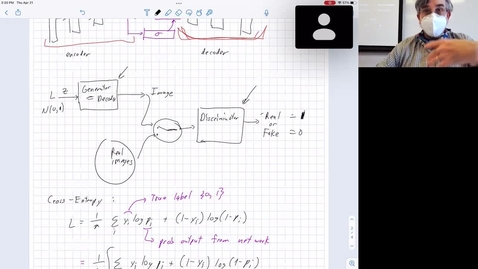 5:50 PM Thu Apr 21
σ
encoder
decoder
L z
N(0,1)
Generator
= Decoder
Image
Real
images
Discriminator
Real = 1
or
Fake = 0
Cross-Entropy :
True label {0, 1}
L = 1/n Σ_i y_i log p_i + (1-y_i) log(1-p_i)
prob output from network
= 1/n [ Σ y_i log p_i + (1-y_i) log(1-p_i)